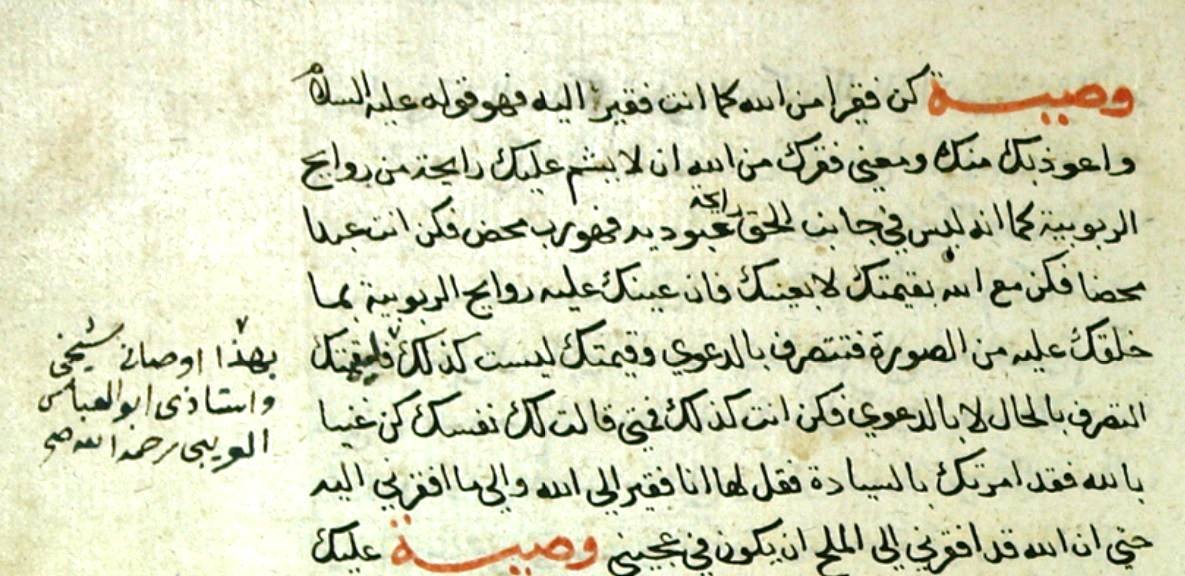 وصية كن فقيرا من الله كما انت فقيرا اليه فهو قوله عليه السلام
واعوذ بك منك ومعنى فقرك من الله ان لا يشم عليك رايحة من روايح
الربوبية كما انه ليس في جانب الحق رايحة عبودية فهو رب محض فكن انت عبدا
محضا فكن مع الله بقيمتك لا بعينك فان عينك عليه روايح الربوبية بما
خلقك عليه من الصورة فتتصرف بالدعوي وقيمتك ليست كذلك فلقيمتك
التصرف بالحال لا بالدعوي فكن انت كذلك فمتى قالت لك نفسك كن غنيا
بالله فقد امرتك بالسيادة فقل لها انا فقير الى الله والي ما افقرني اليه
حتي ان الله قد افقرني الي الملح ان يكون في عجيني وصية عليك
بهذا اوصاني شيخي
واستاذي ابو العباس
العريبي رحمه الله صح